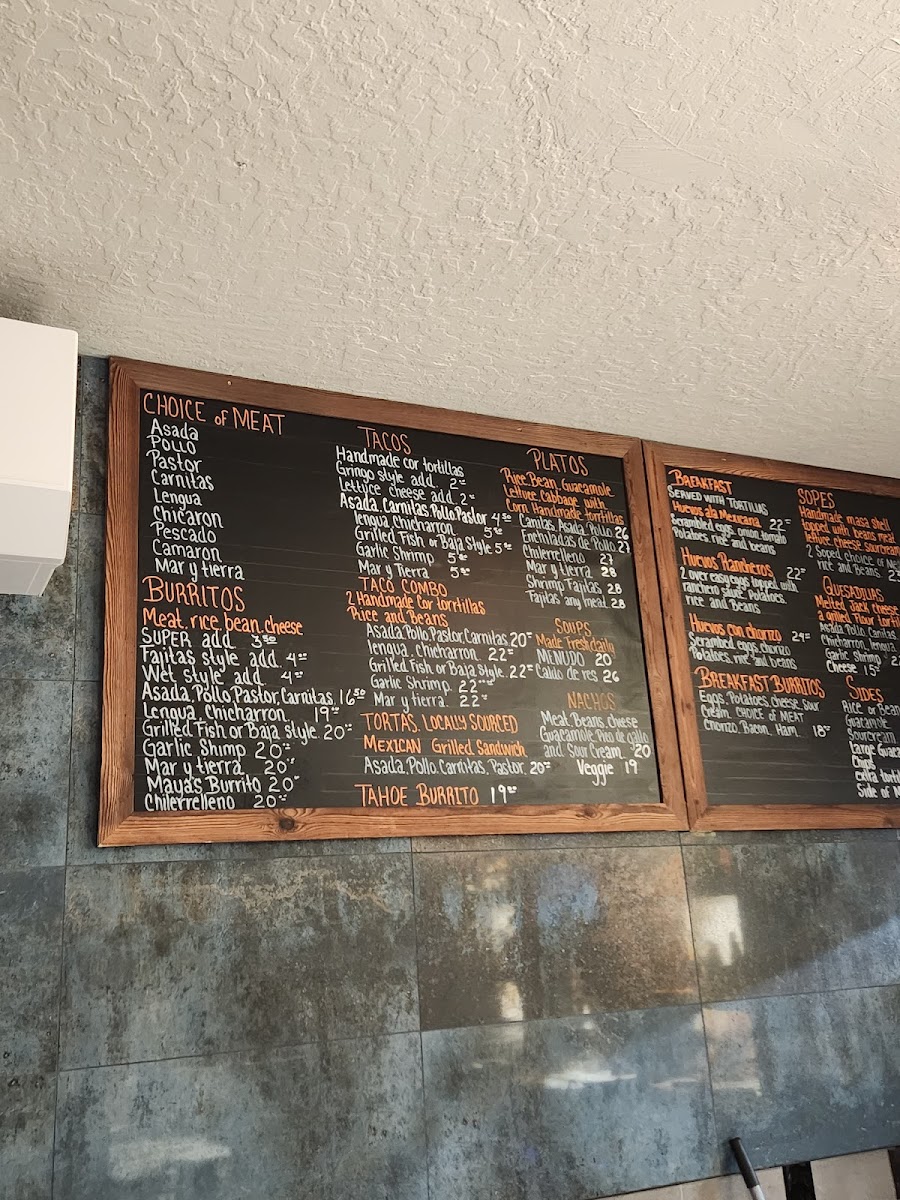 CHOICE of MEAT
Asada
Pollo
Pastor
Carnitas
Lengua
Chicaron
Pescado
Camaron
Mar y tierra
BURRITOS
Meat, rice, bean, cheese
SUPER add 3⁵⁰
Fajitas style add 4⁰⁰
Wet style add 4⁰⁰
Asada, Pollo, Pastor, Carnitas 16⁵⁰
Lengua, Chicharron 19⁰⁰
Grilled Fish or Baja style 20⁰⁰
Garlic Shimp 20⁰⁰
Mar y tierra 20⁰⁰
Mayas Burrito 20⁰⁰
Chilerrelleno 20⁰⁰
TACOS
Handmade cor tortillas
Gringo style add 2⁰⁰
Lettuce cheese add 2⁰⁰
Asada, Carnitas, Pollo, Pastor 4⁵⁰
lengua, Chicharron 5⁰⁰
Grilled Fish or Baja Style 5⁵⁰
Garlic Shrimp 5⁵⁰
Mar y Tierra 5⁵⁰
TACO COMBO
2 Handmade Cor torrtillas
Rice and Beans
Asada, Pollo, Pastor, Carnitas 20⁰⁰
lengua, chicharron 22⁰⁰
Grilled Fish or Baja Style 22⁰⁰
Garlic Shrimp 22⁰⁰
Mar y tierra 22⁰⁰
TORTAS, LOCALLY SOURCED
MEXICAN Grilled Sandwich
Asada, Pollo, Carnitas, Pastor 20⁰⁰
TAHOE BURRITO 19⁰⁰
PLATOS
Rice, Bean, Guacamole
Lettuce, Cabbage with
Corn Handmade tortillas
Canitas, Asada, Pollo 26
Enchiladas de Pollo 27
Chilerrelleno 27
Mar y tierra 28
Shrimp Fajitas 28
Fajitas any meat 28
SOUPS
Made Fresh daily
MENUDO 20
Caldo de res 26
NACHOS
Meat, Beans, cheese
Guacamole, Pico de gallo
and Sour Cream 20
Veggie 19
BREAKFAST
SERVED WITH TORTILLAS
Huevos ala Mexicana 22⁰⁰
Scrambled eggs, onion, tomato
Potatoes, rice, and beans
Huevos Rancheros 22⁰⁰
2 over easy eggs topped with
ranchero sauce, Potatoes,
rice, and Beans
Huevos con chorizo 24⁰⁰
Scrambled eggs, chorizo
Potatoes, rice, and beans
BREAKFAST BURRITOS
Eggs, Potatoes, cheese, Sour
Cream, CHOICE of MEAT
Chorizo, Bacon, Ham 18⁰⁰
SOPES
Handmade masa shell
topped with beans, meat
lettuce, cheese, sourcream
2 Soped, choice of
rice and Beans 23
QUESADILLAS
Melted Jack cheese
a grilled Flour tortil
Asada, Pollo, Carnitas
Chicharron, lengua
Garlic Shrimp 22
Cheese 15
SIDES
Rice or Bean
Guacamole
Sourcream
Large Guaca
Chips
Extra tortill
Side of M